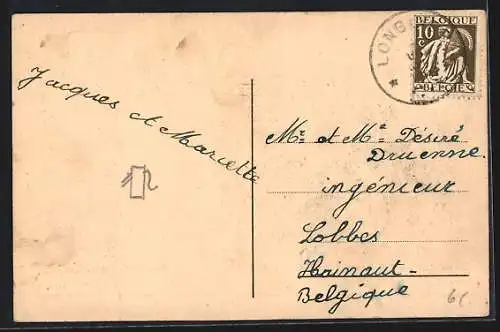 Jacques et Mariette
LONG
BELGIQUE
10
c
BELGIË
Mr et Me Désiré
Druenne
ingénieur
Lobbes
Hainaut-
Belgique